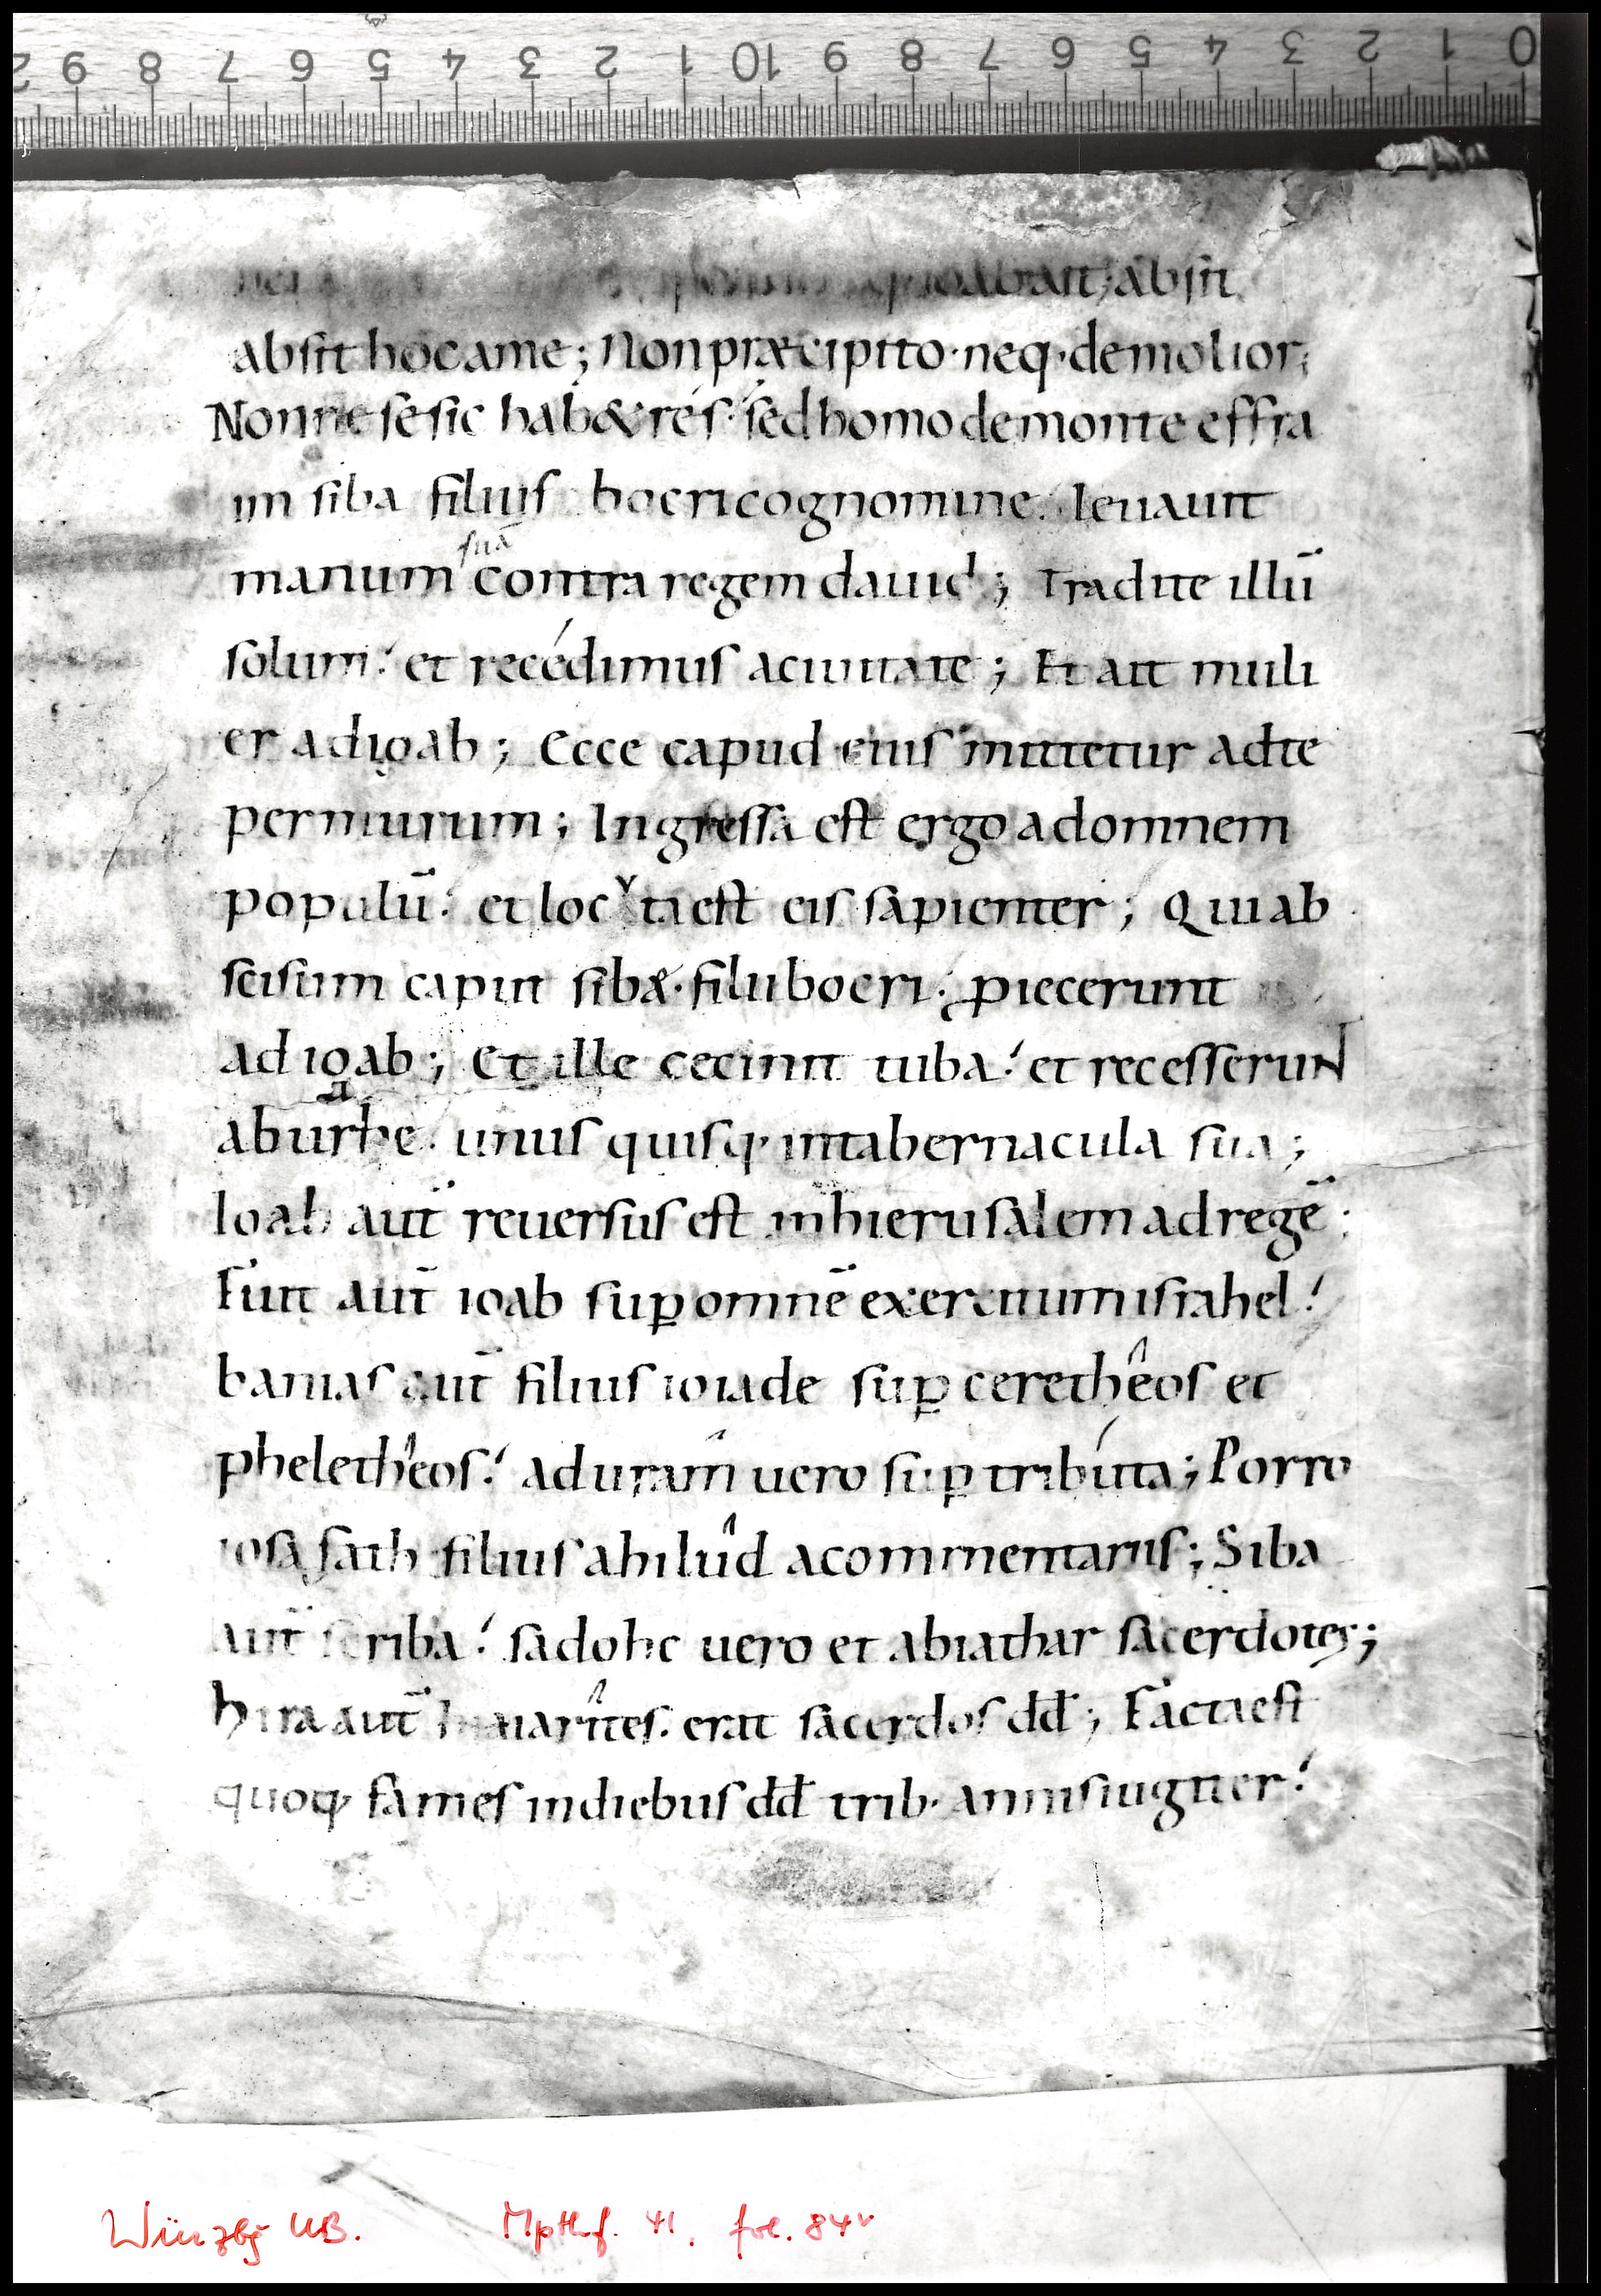 9 8 7 6 5 4 3 2 1 10 9 8 7 6 5 4 3 2 1 0
ioab ait; absit
absit hoc ame; Non præcipito· neq· demolior;
Nonne se sic hab& res· sed homo demonte effra
im siba filius bocri cognomine. leuauit
manum suā contra regem dauid; Tradite illū
solum: et recédimus aciuitate; Et ait muli
er adioab; Ecce capud eius mittetur adte
permurum; Ingressa est ergo adomnem
populū: et locvta est eis sapienter; Qui ab
scisum caput sibæ· filii bocri· ꝓiecerunt
ad ioab; Et ille cecinit tuba: et recesserunt
aburbe. unus quisq· intabernacula sua;
Ioab aut̄ reuersus est inhierusalem ad regē;
Fuit aut̄ ioab suꝑ omnē exercitum israhel:
banias aut̄ filius ioiade suꝑ ceretheos et
pheletheos: aduram uero suꝑ tributa; Porro
iosafath filius ahilud acommentariis; Siba
aut̄ scriba: sadohc uero et abiathar sacerdotes;
hira aut̄ hiaiarites. erat sacerdos dd̄; Facta est
quoq· fames indiebus dd̄ trib· annis iugiter:
Würzbg UB. Mpthf. 41. fol. 84v